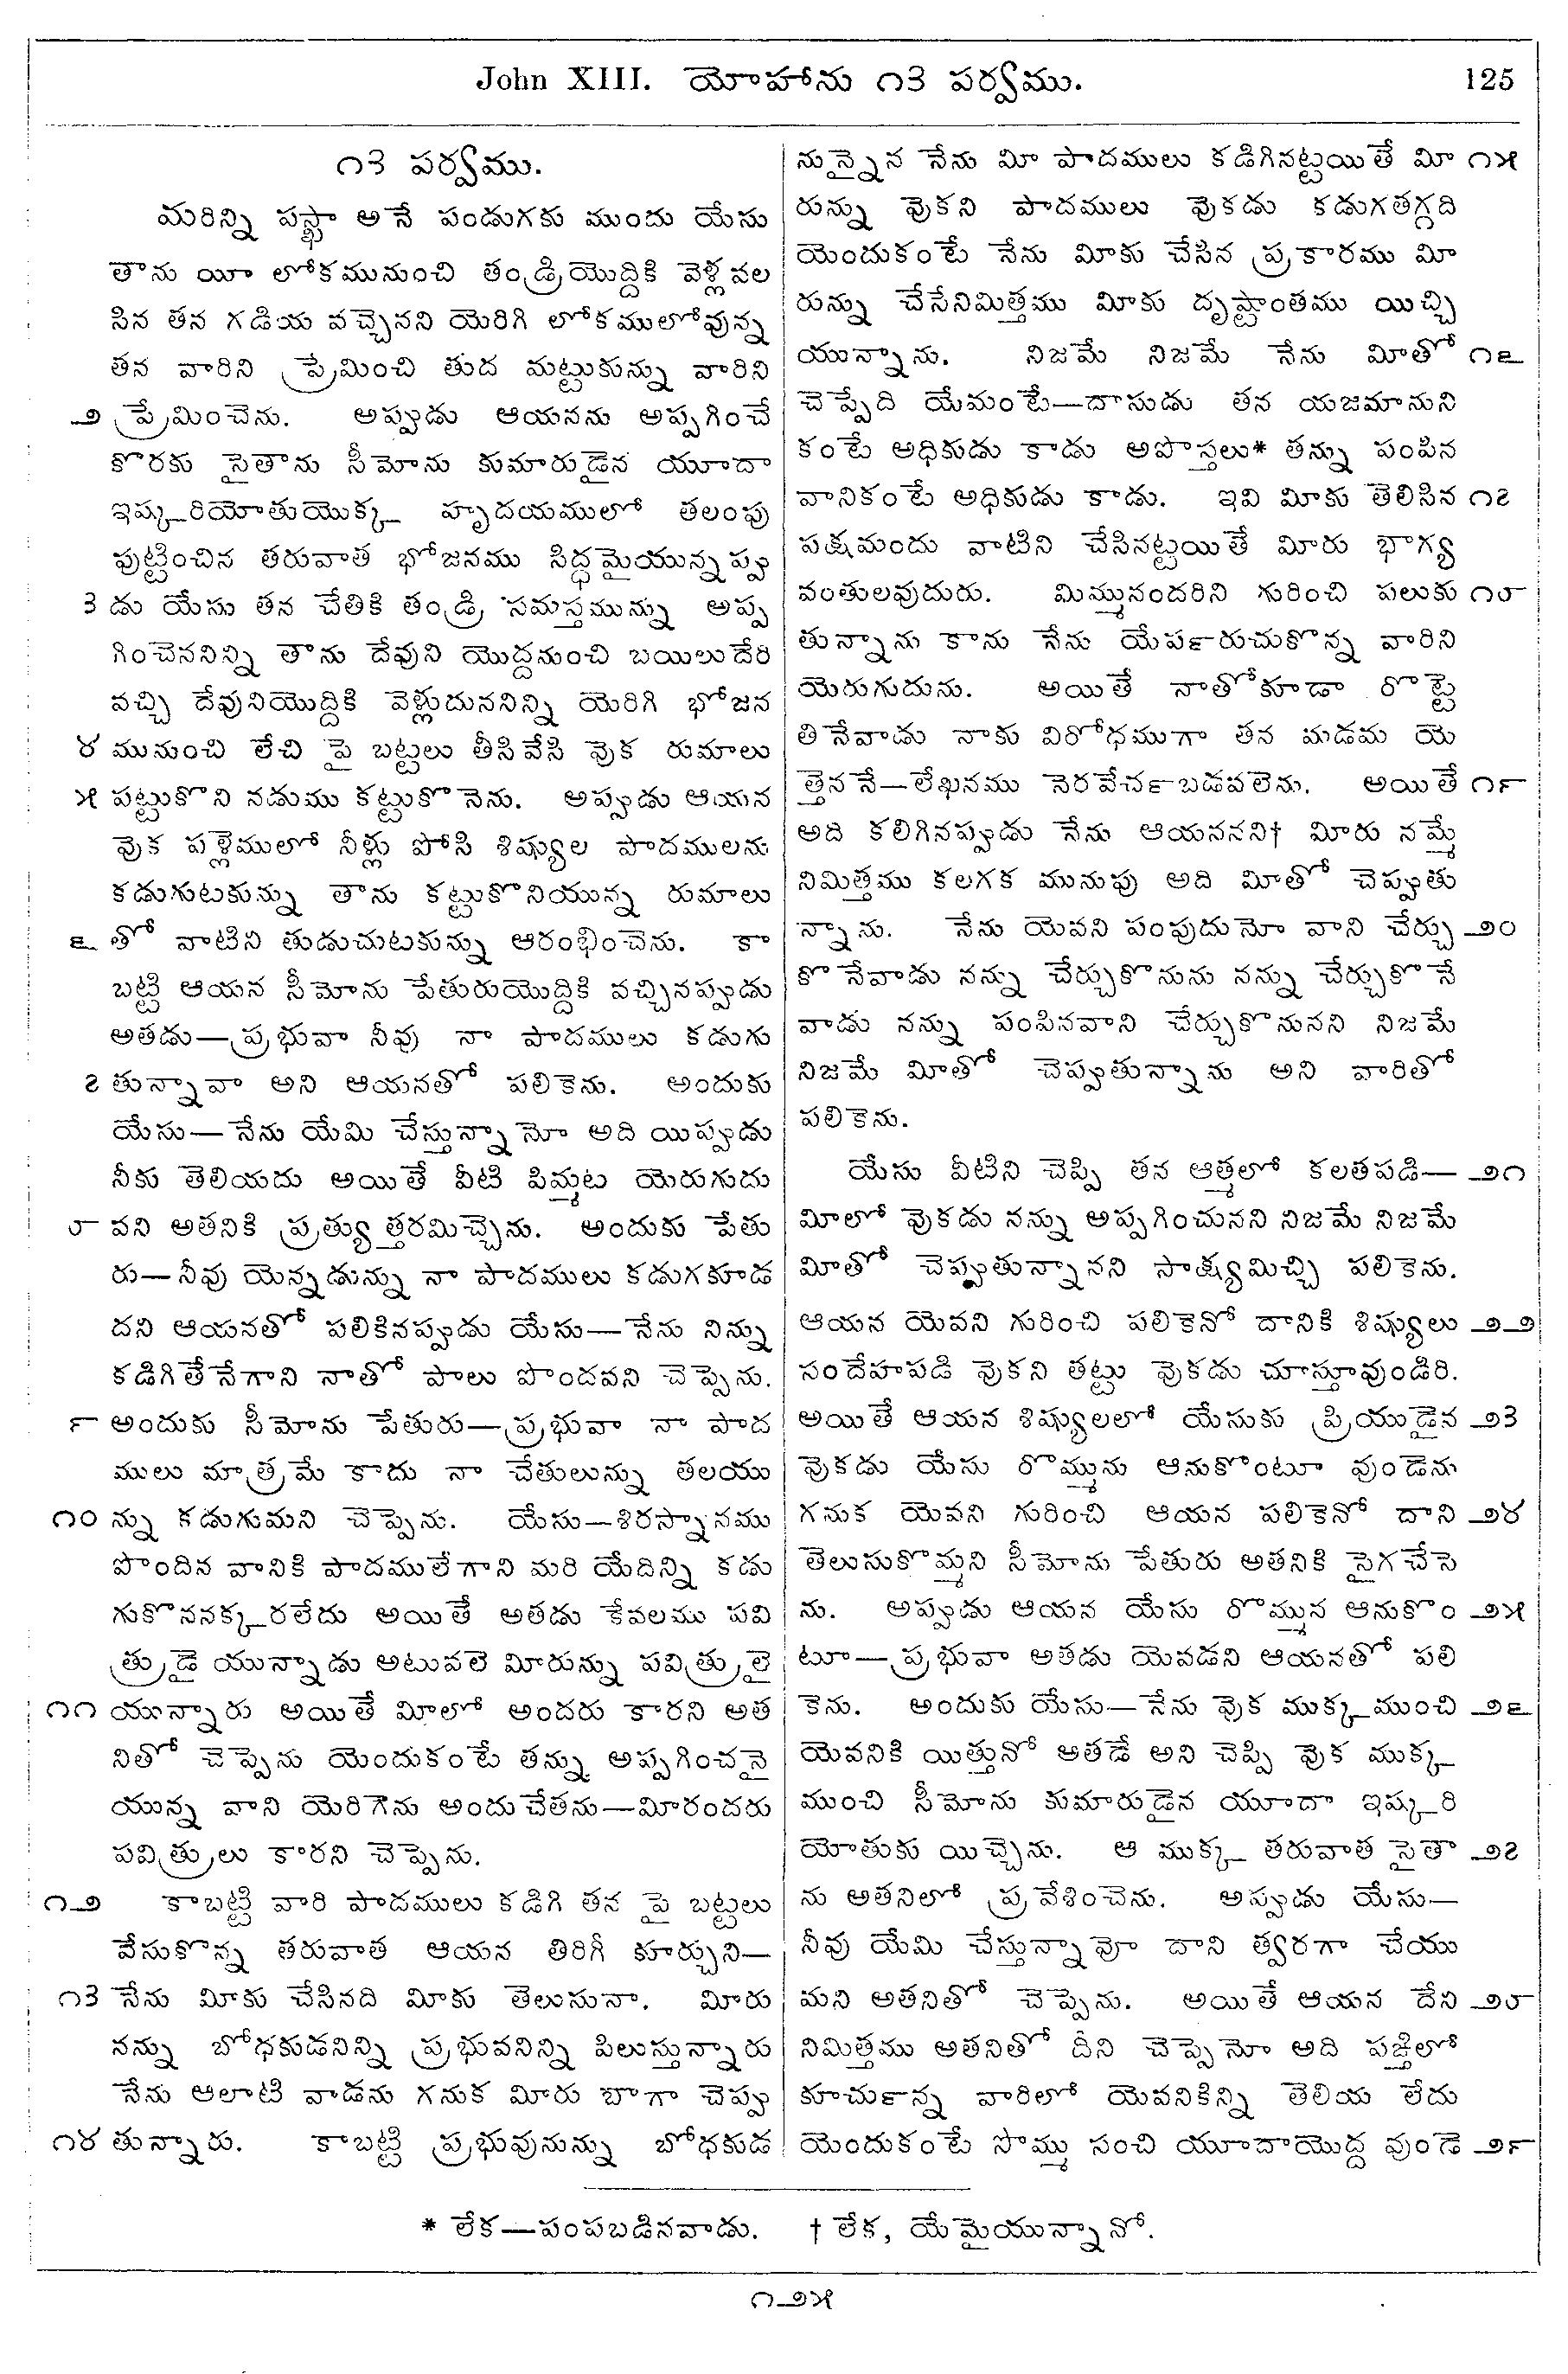 John XIII. యోహాను ౧౩ పర్వము. 125
౧౩ పర్వము.
మరిన్ని పస్ఖా అనే పండుగకు ముందు యేసు
తాను యీ లోకమునుంచి తండ్రియొద్దికి వెళ్లవల
సిన తన గడియ వచ్చెనని యెరిగి లోకములోవున్న
తన వారిని ప్రేమించి తుద మట్టుకున్ను వారిని
౨ ప్రేమించెను. అప్పుడు ఆయనను అప్పగించే
కొరకు సైతాను సీమోను కుమారుడైన యూదా
ఇష్కరియోతుయొక్క హృదయములో తలంపు
పుట్టించిన తరువాత భోజనము సిద్ధమైయున్నప్పు
౩ డు యేసు తన చేతికి తండ్రి సమస్తమున్ను అప్ప
గించెననిన్ని తాను దేవుని యొద్దనుంచి బయిలుదేరి
వచ్చి దేవునియొద్దికి వెళ్లుదుననిన్ని యెరిగి భోజన
౪ మునుంచి లేచి పై బట్టలు తీసివేసి వుక రుమాలు
౫ పట్టుకొని నడుము కట్టుకొనెను. అప్పుడు ఆయన
వుక పళ్లెములో నీళ్లు పోసి శిష్యుల పాదములను
కడుగుటకున్ను తాను కట్టుకొనియున్న రుమాలు
౬ తో వాటిని తుడుచుటకున్ను ఆరంభించెను. కా
బట్టి ఆయన సీమోను పేతురుయొద్దికి వచ్చినప్పుడు
అతడు—ప్రభువా నీవు నా పాదములు కడుగు
౭ తున్నావా అని ఆయనతో పలికెను. అందుకు
యేసు—నేను యేమి చేస్తున్నానో అది యిప్పుడు
నీకు తెలియదు అయితే వీటి పిమ్మట యెరుగుదు
౮ వని అతనికి ప్రత్యుత్తరమిచ్చెను. అందుకు పేతు
రు—నీవు యెన్నడున్ను నా పాదములు కడుగకూడ
దని ఆయనతో పలికినప్పుడు యేసు—నేను నిన్ను
కడిగితేనేగాని నాతో పాలు పొందవని చెప్పెను.
౯ అందుకు సీమోను పేతురు—ప్రభువా నా పాద
ములు మాత్రమే కాదు నా చేతులున్ను తలయు
౧౦ న్ను కడుగుమని చెప్పెను. యేసు—శిరస్నానము
పొందిన వానికి పాదములేగాని మరి యేదిన్ని కడు
గుకొననక్కరలేదు అయితే అతడు కేవలము పవి
త్రుడై యున్నాడు అటువలె మీరున్ను పవిత్రులై
౧౧ యున్నారు అయితే మీలో అందరు కారని అత
నితో చెప్పెను యెందుకంటే తన్ను అప్పగించనై
యున్న వాని యెరిగెను అందుచేతను—మీరందరు
పవిత్రులు కారని చెప్పెను.
౧౨ కాబట్టి వారి పాదములు కడిగి తన పై బట్టలు
వేసుకొన్న తరువాత ఆయన తిరిగీ కూర్చుని—
౧౩ నేను మీకు చేసినది మీకు తెలుసునా. మీరు
నన్ను బోధకుడనిన్ని ప్రభువనిన్ని పిలుస్తున్నారు
నేను ఆలాటి వాడను గనుక మీరు బాగా చెప్పు
౧౪ తున్నారు. కాబట్టి ప్రభువునున్ను బోధకుడ
నున్నైన నేను మీ పాదములు కడిగినట్టయితే మీ ౧౫
రున్ను వుకని పాదములు వుకడు కడుగతగ్గది
యెందుకంటే నేను మీకు చేసిన ప్రకారము మీ
రున్ను చేసేనిమిత్తము మీకు దృష్టాంతము యిచ్చి
యున్నాను. నిజమే నిజమే నేను మీతో ౧౬
చెప్పేది యేమంటే—దాసుడు తన యజమానుని
కంటే అధికుడు కాడు అపొస్తలు* తన్ను పంపిన
వానికంటే అధికుడు కాడు. ఇవి మీకు తెలిసిన ౧౭
పక్షమందు వాటిని చేసినట్టయితే మీరు భాగ్య
వంతులవుదురు. మిమ్మునందరిని గురించి పలుకు ౧౮
తున్నాను కాను నేను యేపఱరుచుకొన్న వారిని
యెరుగుదును. అయితే నాతోకూడా రొట్టె
తినేవాడు నాకు విరోధముగా తన మడమ యె
త్తెననే—లేఖనము నెరవేచఱబడవలెను. అయితే ౧౯
అది కలిగినప్పుడు నేను ఆయననని† మీరు నమ్మే
నిమిత్తము కలగక మునుపు అది మీతో చెప్పుతు
న్నాను. నేను యెవని పంపుదునో వాని చేర్చు ౨౦
కొనేవాడు నన్ను చేర్చుకొనును నన్ను చేర్చుకొనే
వాడు నన్ను పంపినవాని చేర్చుకొనునని నిజమే
నిజమే మీతో చెప్పుతున్నాను అని వారితో
పలికెను.
యేసు వీటిని చెప్పి తన ఆత్మలో కలతపడి— ౨౧
మీలో వుకడు నన్ను అప్పగించునని నిజమే నిజమే
మీతో చెప్పుతున్నానని సాక్ష్యమిచ్చి పలికెను.
ఆయన యెవని గురించి పలికెనో దానికి శిష్యులు ౨౨
సందేహపడి వుకని తట్టు వుకడు చూస్తూవుండిరి.
అయితే ఆయన శిష్యులలో యేసుకు ప్రియుడైన ౨౩
వుకడు యేసు రొమ్మును ఆనుకొంటూ వుండెను
గనుక యెవని గురించి ఆయన పలికెనో దాని ౨౪
తెలుసుకొమ్మని సీమోను పేతురు అతనికి సైగచేసె
ను. అప్పుడు ఆయన యేసు రొమ్మున ఆనుకొం ౨౫
టూ—ప్రభువా అతడు యెవడని ఆయనతో పలి
కెను. అందుకు యేసు—నేను వుక ముక్క ముంచి ౨౬
యెవనికి యిత్తునో అతడే అని చెప్పి వుక ముక్క
ముంచి సీమోను కుమారుడైన యూదా ఇష్కరి
యోతుకు యిచ్చెను. ఆ ముక్క తరువాత సైతా ౨౭
ను అతనిలో ప్రవేశించెను. అప్పుడు యేసు—
నీవు యేమి చేస్తున్నావో దాని త్వరగా చేయు
మని అతనితో చెప్పెను. అయితే ఆయన దేని ౨౮
నిమిత్తము అతనితో దీని చెప్పెనో అది పఙ్తిలో
కూచుఱన్న వారిలో యెవనికిన్ని తెలియ లేదు
యెందుకంటే సొమ్ము సంచి యూదాయొద్ద వుండె ౨౯
* లేక—పంపబడినవాడు. † లేక, యేమైయున్నానో.
౧౨౫